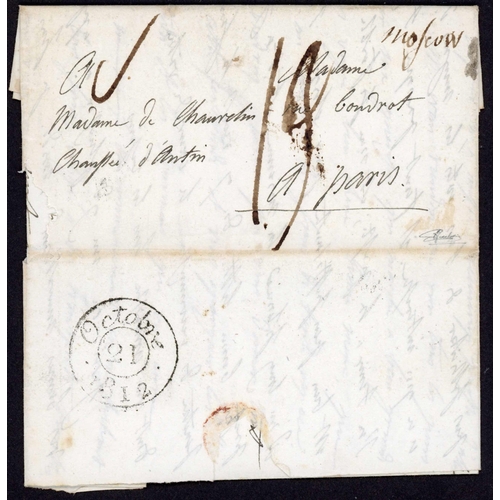 Moscow
A
Madame
Madame de Chauvelin
Coudrot
Chaussée d'Antin
A paris.
Octobre
21
1812